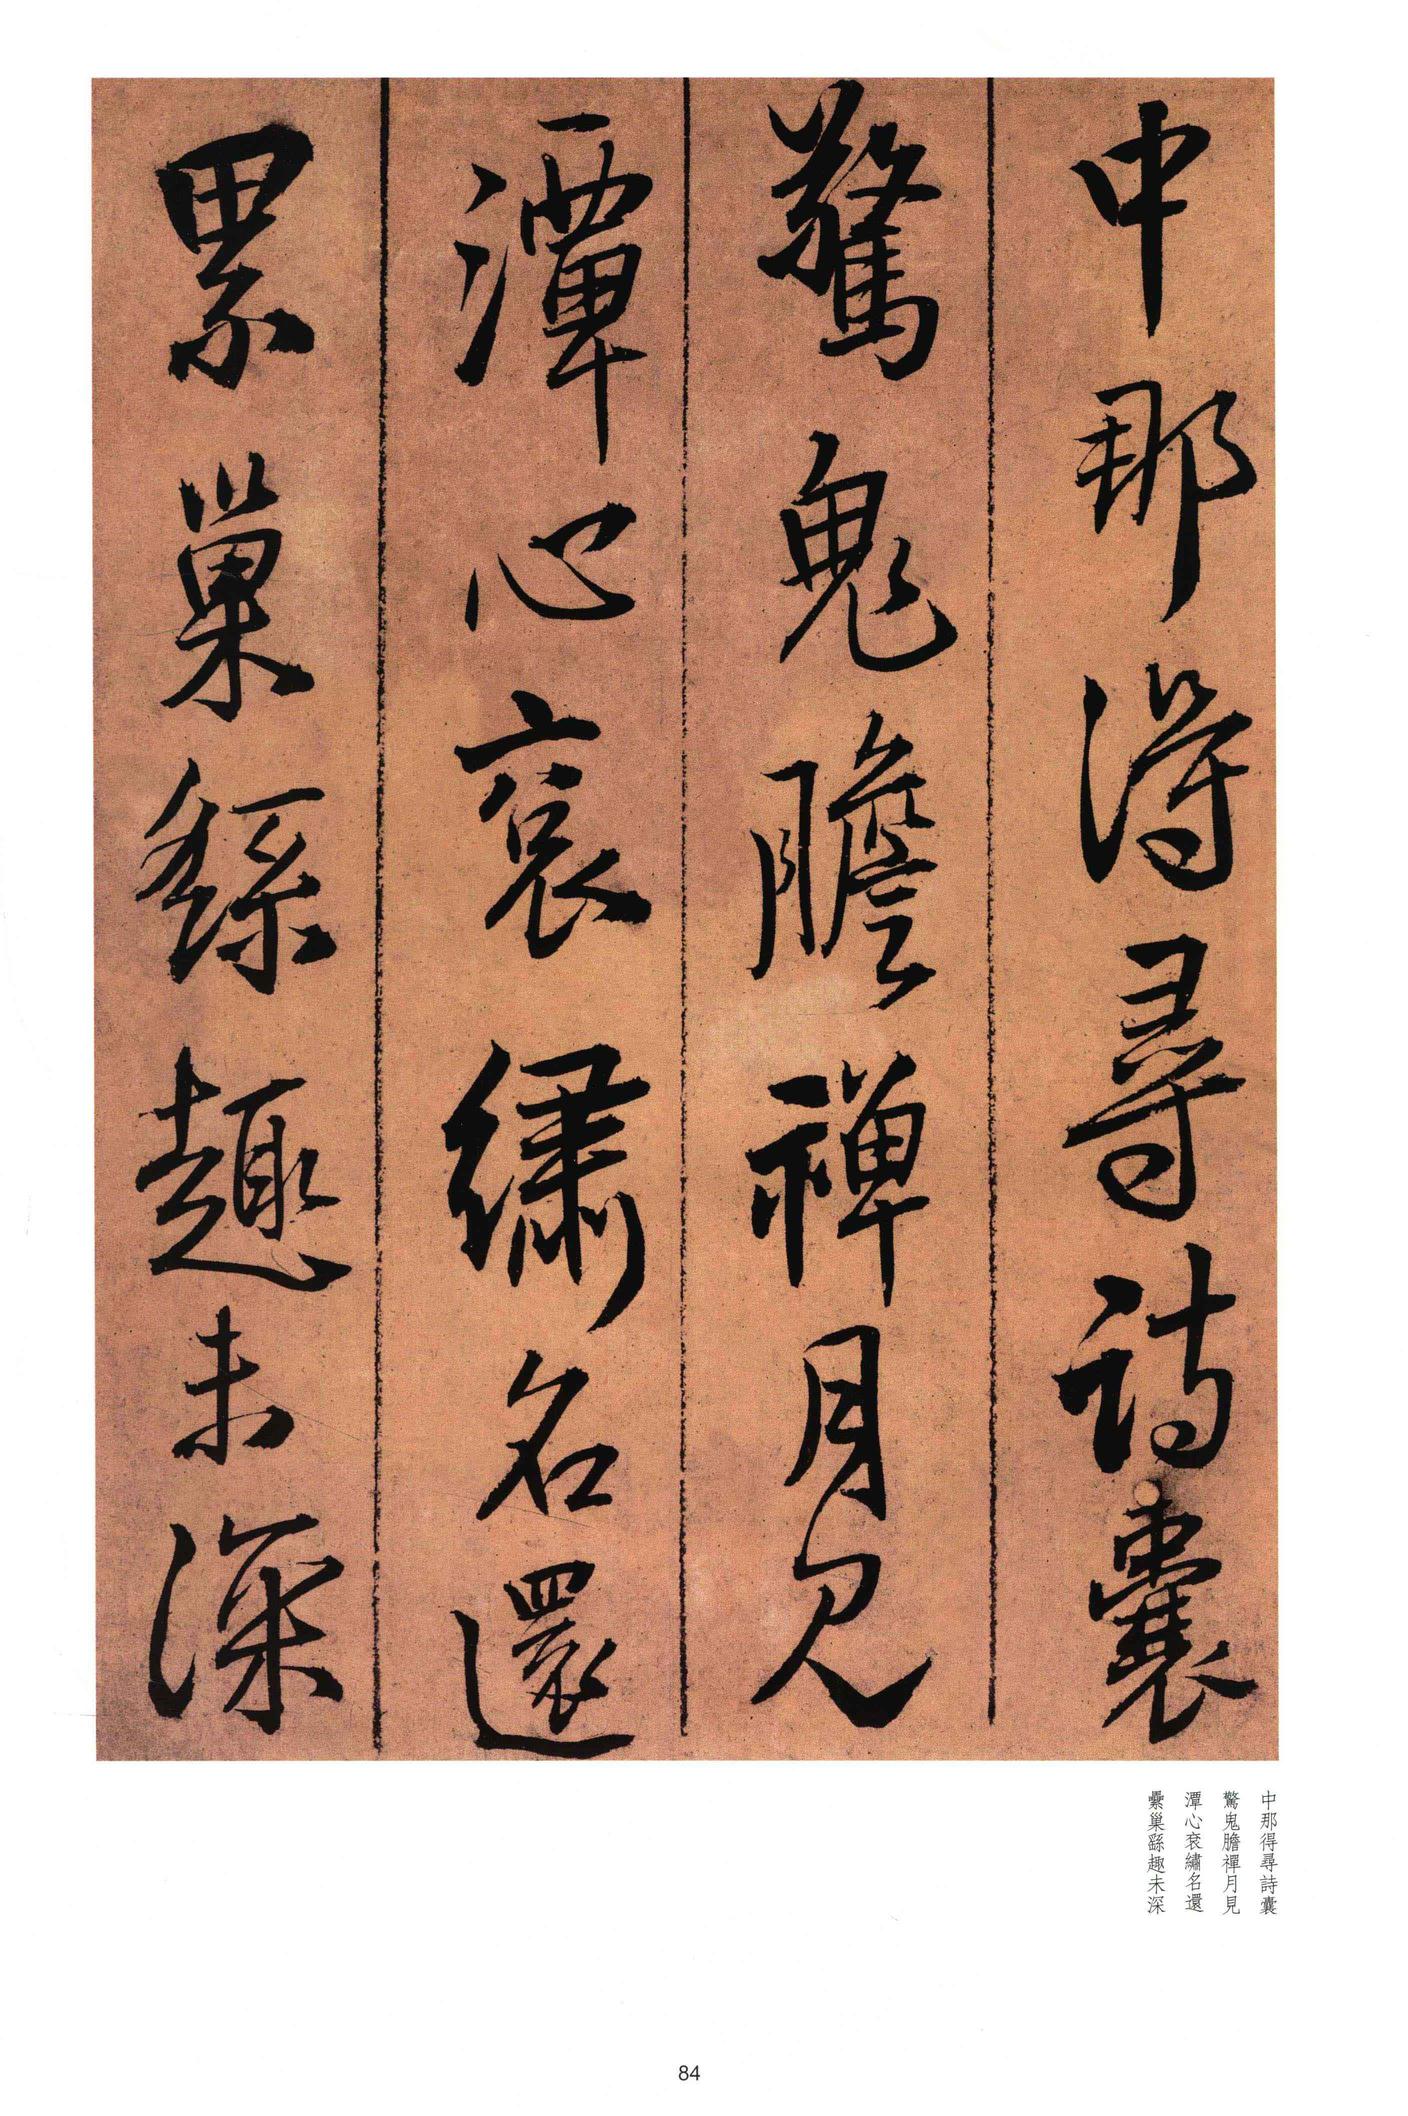 中那得尋詩囊
驚鬼膽禪月見
潭心衮繡名還
累巢繇趣未深
中那得尋詩囊
驚鬼膽禪月見
潭心衮繡名還
纍巢繇趣未深
84